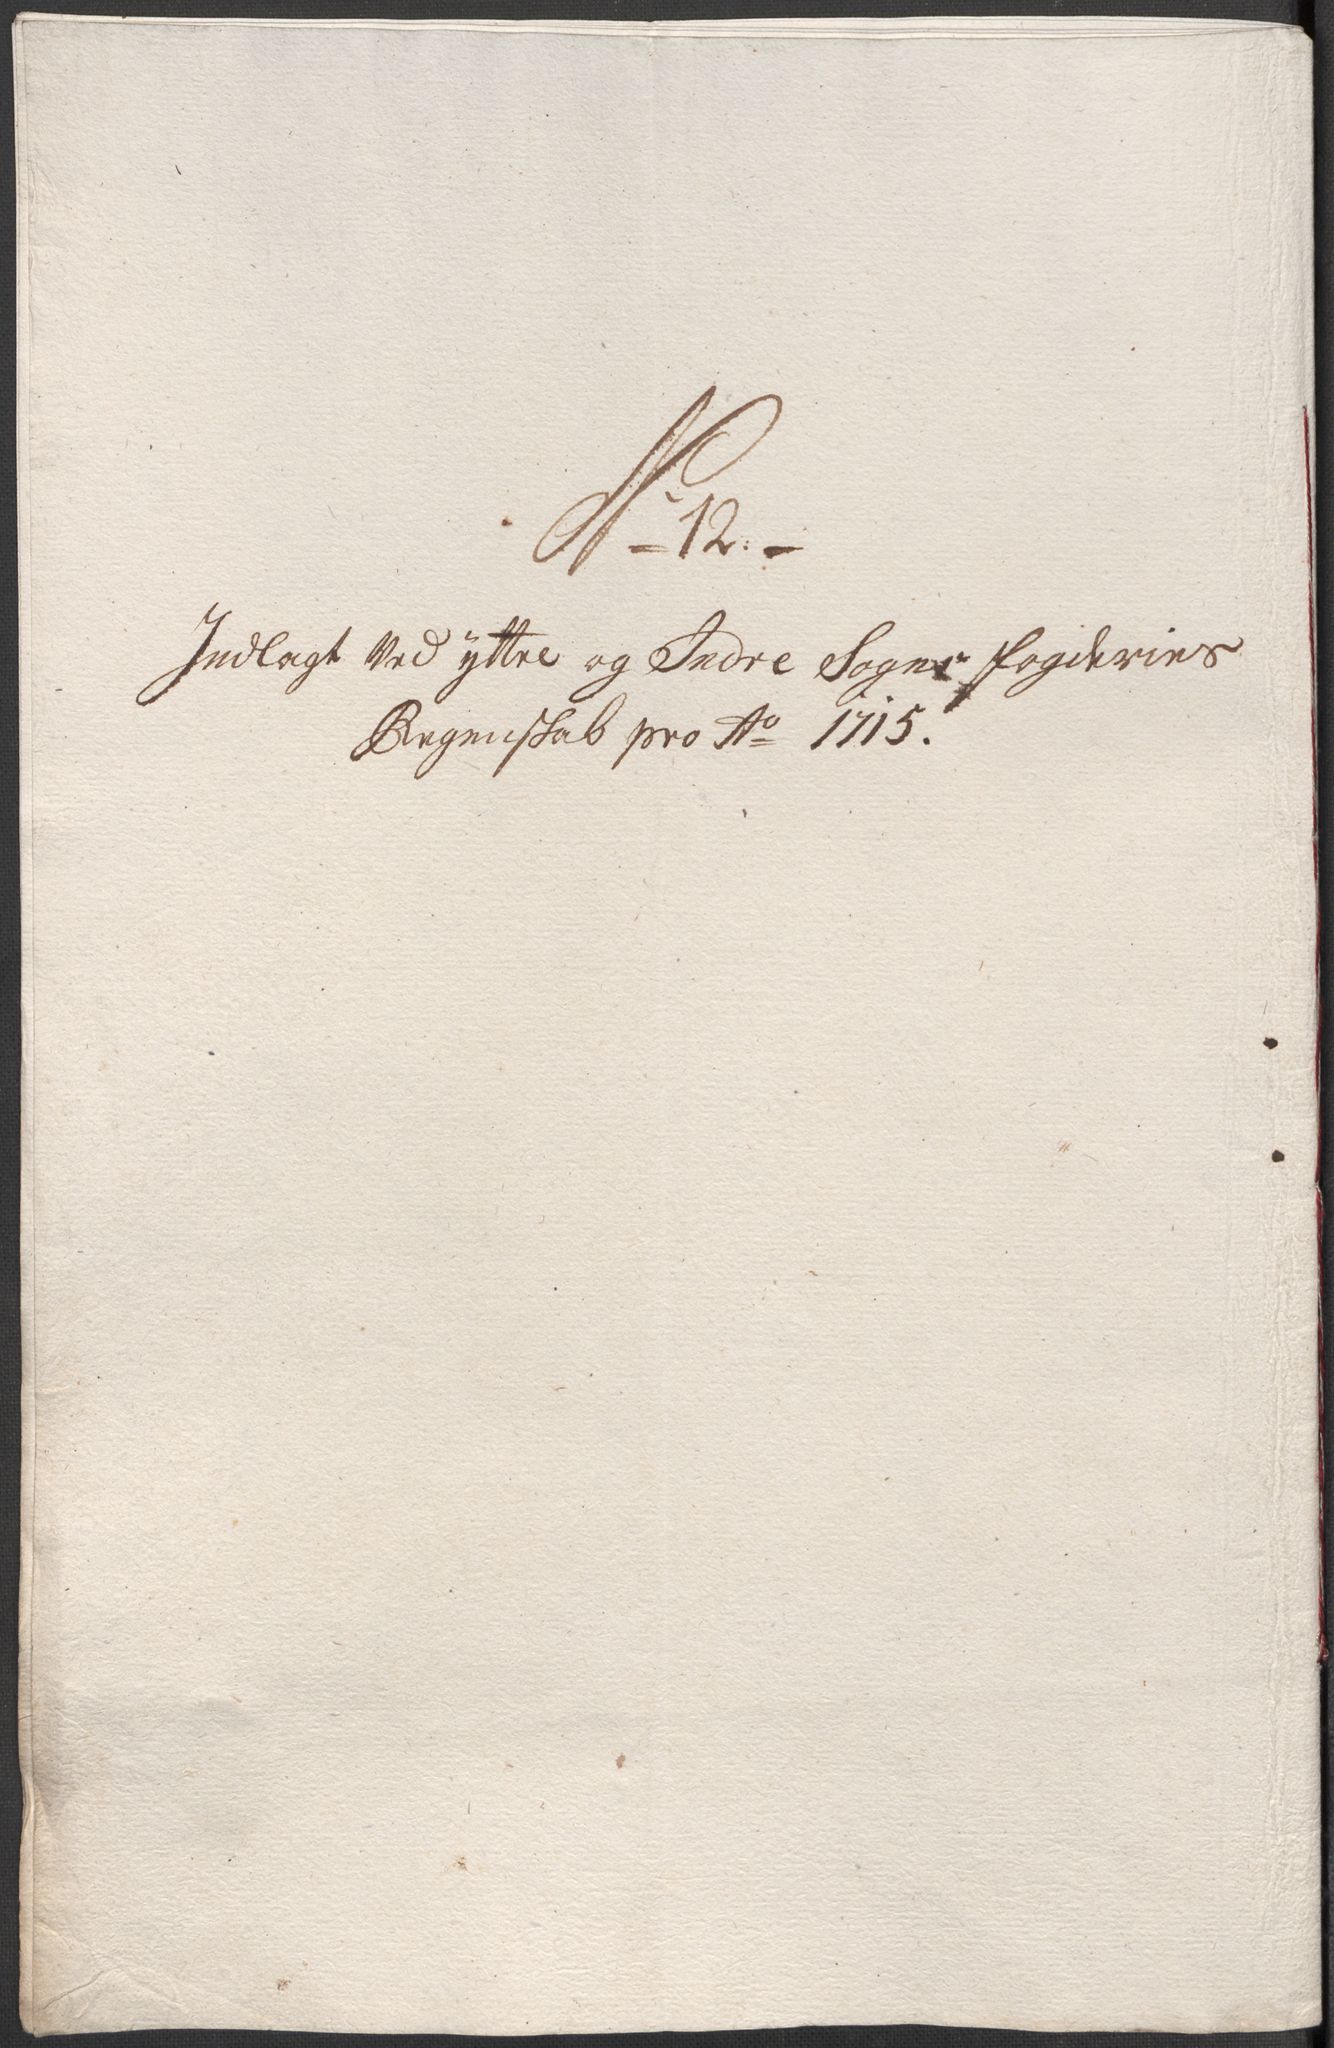 N 12.
Indlagt Ved ÿttre og Indre Sogns fogderies
Regenskab pro Ao 1715.